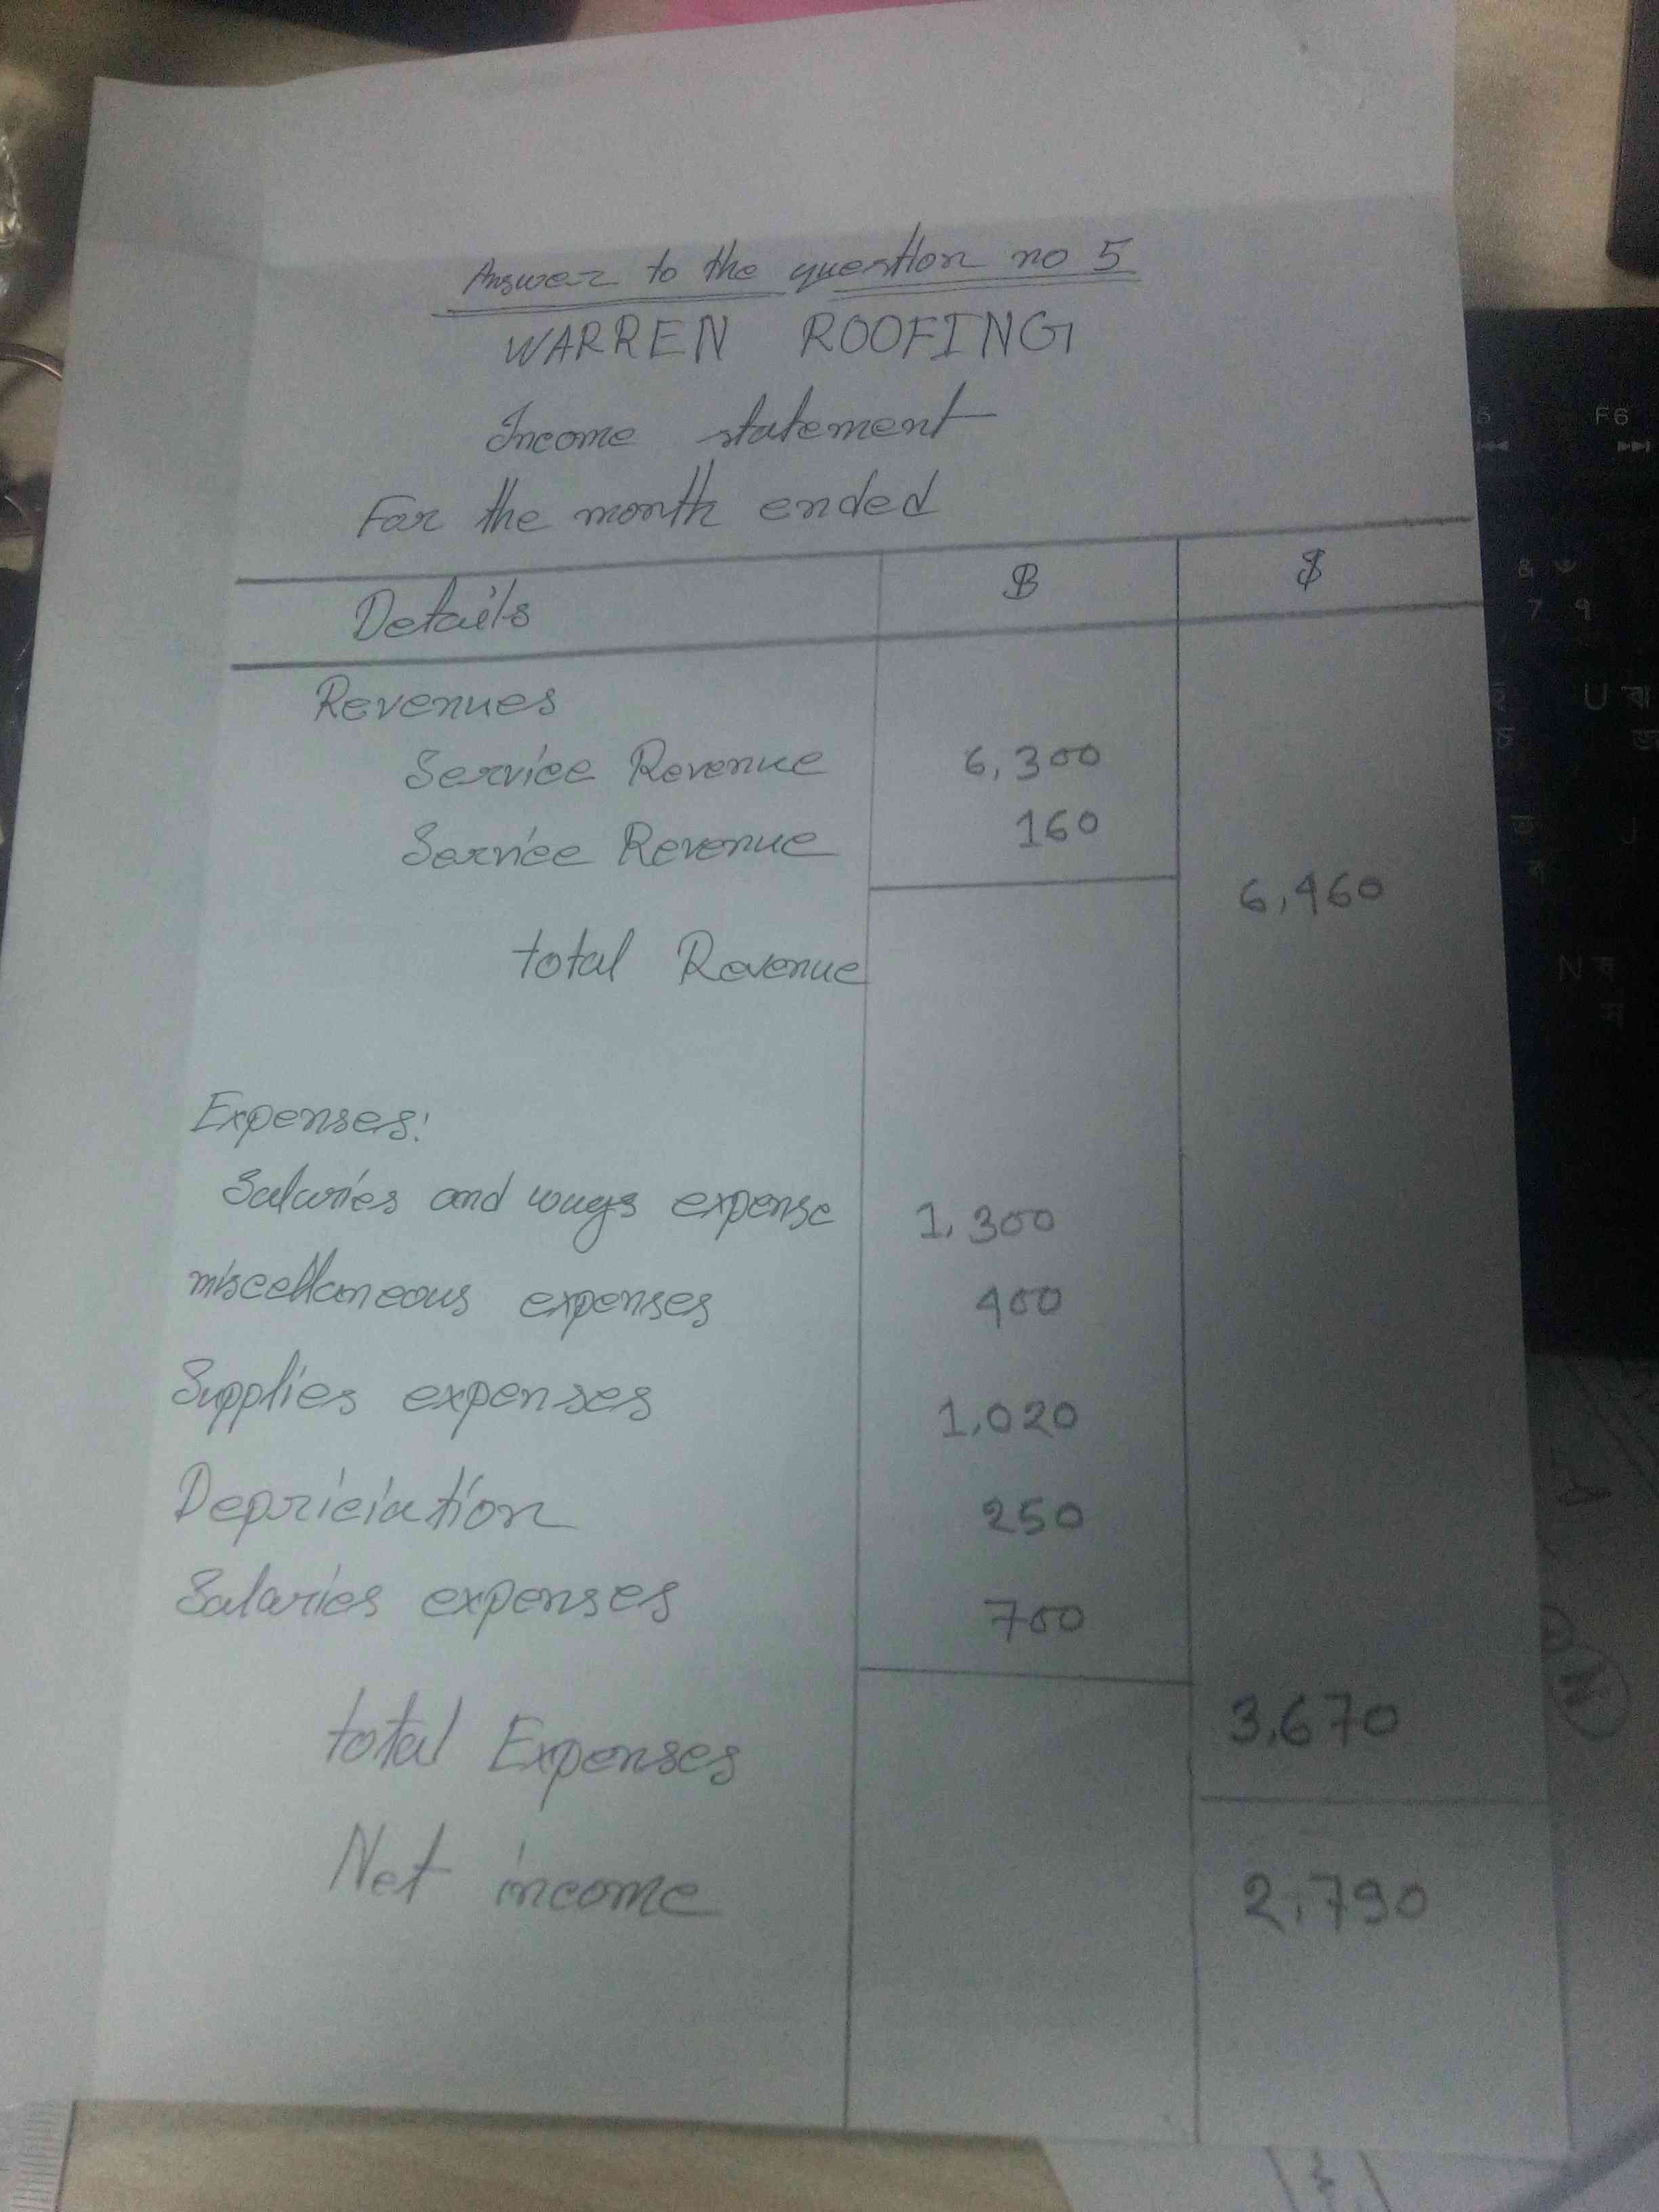 Answer to the question no 5
WARREN ROOFING
Income statement
For the month ended
Details $ $
Revenues
Service Revenue 6,300
Service Revenue 160
6,460
total Revenue
Expenses:
Salaries and wags expense 1,300
miscellaneous expenses 400
Supplies expenses 1,020
Depriciation 250
Salaries expenses 700
total Expenses 3,670
Net income 2,790
F6
7 ৭
U
J
N ব